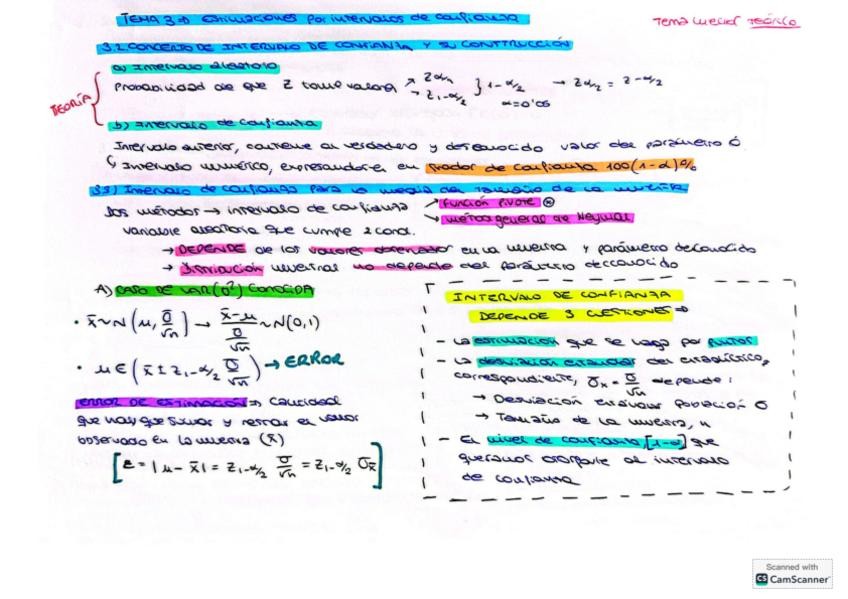 TEMA 3 ⇒ Estimaciones por intervalos de confianza
Tema menos TEÓRICO
3.2 CONCEPTO DE INTERVALO DE CONFIANZA Y SU CONSTRUCCIÓN
a) Intervalo aleatorio
TEORÍA
Probabilidad de que Z tome valores
Z α/2
Z 1-α/2
} 1-α/2
α=0'05
b) Intervalo de confianza
Intervalo anterior, contiene al verdadero y desconocido valor del parámetro
↳ Intervalo numérico, expresándose en grados de confianza 100(1-α)%
3.3) Intervalo de confianza para la media del tamaño de la muestra
Dos métodos → intervalo de confianza
función pivote ⊛
método general de Neyman
variable aleatoria que cumple 2 cond.
→ DEPENDE de los valores observados en la muestra y parámetro desconocido
→ Distribución muestral no depende del parámetro desconocido
A) CASO DE VAR(σ²) CONOCIDA
• x̄ ~ N(μ, σ/√n) → (x̄-μ)/(σ/√n) ~ N(0,1)
• μ ∈ (x̄ ± z 1-α/2 σ/√n) → ERROR
ERROR DE ESTIMACIÓN ⇒ Cantidad
que hay que sumar y restar al valor
observado en la muestra (x̄)
[ε = |μ - x̄| = z 1-α/2 σ/√n = z 1-α/2 σx̄]
INTERVALO DE CONFIANZA
DEPENDE 3 CUESTIONES ⇒
- La estimación que se haga por puntos
- La desviación estándar del estadístico,
correspondiente, σx = σ/√n depende:
→ Desviación estándar población σ
→ Tamaño de la muestra, n
- El nivel de confianza, [1-α] que
queramos darle al intervalo
de confianza
Scanned with
CS CamScanner